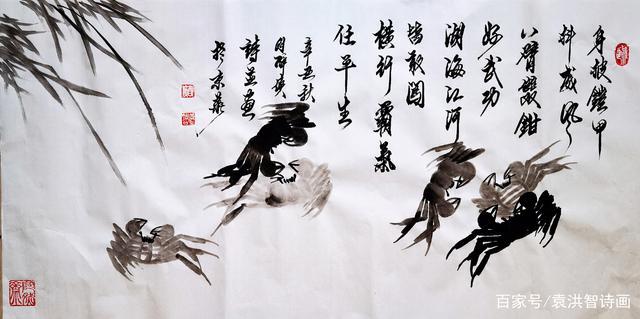 身披鎧甲
抖威風
八臂雙鉗
好武功
湖海江河
皆敢闖
橫行霸氣
任平生
辛丑秋
月
詩並畫
於京華
百家号/袁洪智诗画